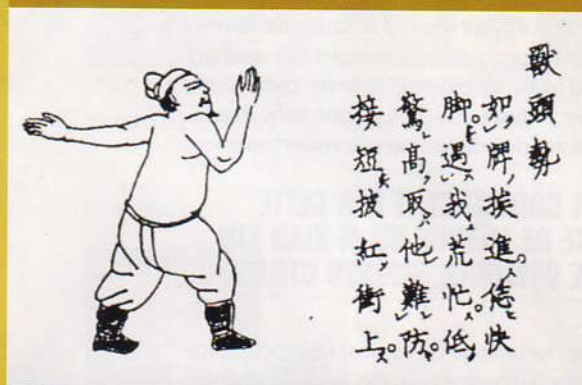 獸頭勢
如牌挨進。恁快
脚遇我荒忙。低
驚高取他難防。
接短披紅衝上。